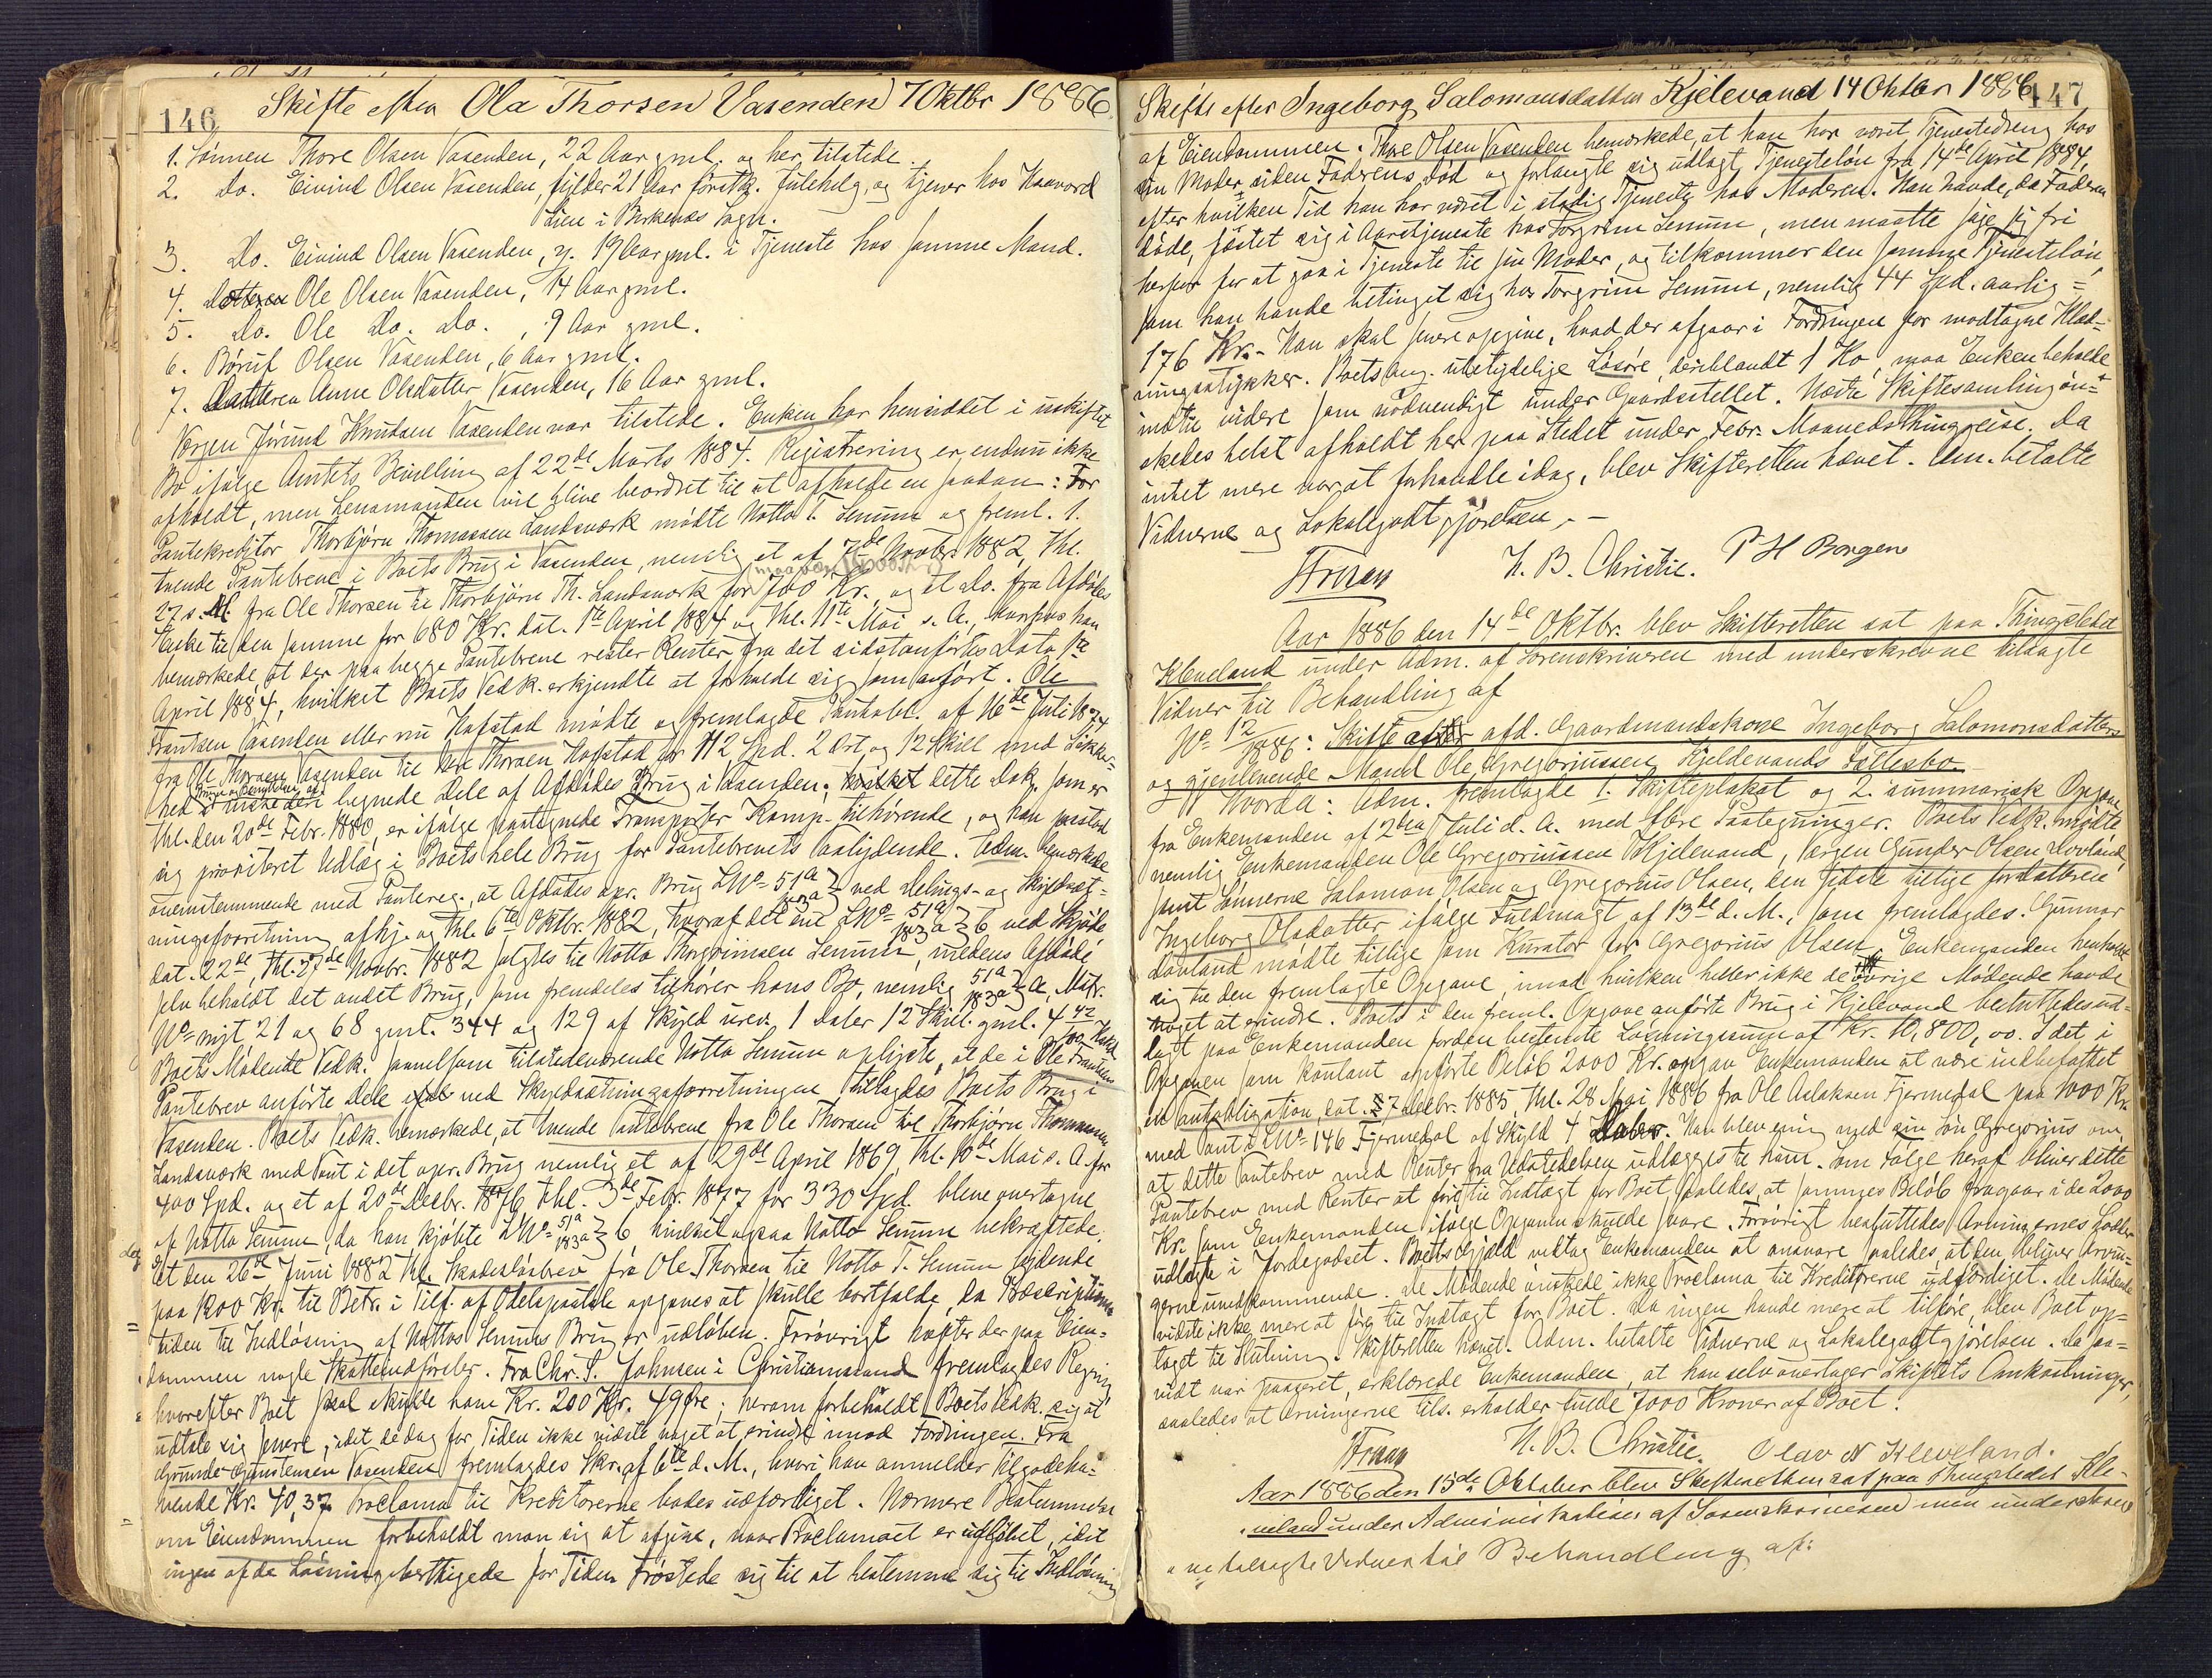 146
Skifte efter Ola Thorsen Vasenden 7 Oktbr 1886
1. Sönnen Thore Olsen Vasenden, 22 Aar gml. og her tilstede.
2. do. Eivind Olsen Vasenden, fylder 21 Aar förstk. Julehelg, og tjener hos Haavard
Lien i Birkenæs Sogn.
3. Do. Eivind Olsen Vasenden, y. 19 Aar gml. i Tjeneste hos samme Mand.
4. Ole Olsen Vasenden, 14 Aar gml.
5. Do. Ole Do. Do., 9 Aar gml.
6. Böruf Olsen Vasenden, 6 Aar gml.
7. Datteren Anne Olsdatter Vasenden, 16 Aar gml.
Værgen Jörund Knudsen Vasenden var tilstede. Enken har hensiddet i uskiftet
Bo ifølge Amtets Bevilling af 22de Marts 1884. Registrering er endnu ikke
afholdt, men Lensmanden vil blive beordret til at afholde en saadan: For
Pantekreditor Thorbjörn Thomassen Landsværk mödte Notto T. Senum og freml. 1.
tvende Pantebreve i Boets Brug i Vasenden, nemlig et af 7de Novbr 1882, thl.
27 s. M. fra Ole Thorsen til Thorbjörn Th. Landsværk for 700 Kr. og et do. fra Afdödes
Enke til den samme for 680 Kr. dat. 1te April 1884 og thl. 11te Mai s. A., hvorhos han
bemærkede, at der paa begge Pantebreve rester Renter fra det sidstanförtes Dato 1te
April 1884, hvilket Boets Vedk. erkjendte at forholde sig som anfört. Ole
Frantsen Vasenden eller nu Hafstad mödte og fremlagde Pantobl. af 16de Juli 1874
fra Ole Thorsen Vasenden til Thorsen Hafstad for 112 Spd. 2 Ort og 12 Skill med Sikker-
hed i hegnede Dele af Afdödes Brug i Vasenden; dette Dok. som er
thl. den 20de Febr. 1880, er ifølge paategnede Transporter Komp. tilhörende, og han paastod
sig prioriteret Udlæg i Boets hele Brug for Pantebrevets Paalydende. Adm. bemærkede
overensstemmende med Pantereg., at Afdödes opr. Brug LNo 51a 183a ved Delings- og Skyldsæt-
ningsforretning afhj. og thl. 6te Oktbr. 1882, hvoraf det ene LNo 51a 183a 6 ved Skjöde
dat. 22de, thl. 27de Novbr. 1882 solgtes til Notto Thorgrimsen Senum, medens Afdöde
selv beholdt det andet Brug, som fremdeles tilhører hans Bo, nemlig 51a 183a a, Matr.
No nyt, 21 og 68 gml. 344 og 129 af Skyld urev. 1 Daler 12 Skill. gml. 4 42/100 Mark.
Boets Mödende Vedk. saavelsom tilstedeværende Notto Senum oplyste, at de i Ole Frantsens
Pantebrev anförte Dele ved Skyldsætningsforretningen tillagdes Boets Brug i
Vasenden. Boets Vedk. bemærkede, at tvende Pantebreve fra Ole Thorsen til Thorbjörn Thomassen
Landsværk med Pant i det opr. Brug nemlig et af 29de April 1869, thl. 10de Mai s. A. for
400 Spd. og et af 20de Decbr. 1876 thl. 3de Febr. 1877 for 330 Spd. bleve overtagne
af Notto Senum, da han kjöbte LNo 51a 183a 6 hvilket ogsaa Notto Senum bekræftede.
Et den 26de Juni 1882 thl. Skadeslösbrev fra Ole Thorsen til Notto T. Senum lydende
paa 1200 Kr. til Betr. i Tilf. af Odelspaatale opgaves at skulle bortfalde, da Præskriptions-
tiden til Indlösning af Nottos Senums Brug er udlöben. Forövrigt hæfter der paa Eien-
dommen nogle Skatteudforsler. Fra Chr. S. Johnsen i Christianssand fremlagdes Regning
hvorefter Boet skal skylde ham Kr. 200 Kr. 49 Öre; herom forbeholdt Boets Vedk. sig at
udtale sig senere, idet de dog for Tiden ikke vidste noget at erindre imod Fordringen. Fra
Gunder Gunstensen Vasenden fremlagdes Skr. af 6te d. M., hvori han anmelder Tilgodeha-
vende Kr. 40,37. Proclama til Kreditorerne bades udfærdiget. Nærmere Bestemmelse
om Eiendommen forbeholdt man sig at afgive, naar Proclamaet er udlöbet, idet
ingen af de Löseningsberettigede for Tiden tröstede sig til at bestemme sig til Indlösning
147
Skifte efter Ingeborg Salomonsdatter Kjelevand 14 Oktbr 1886
af Eiendommen. Thore Olsen Vasenden bemærkede, at han har været Tjenestedreng hos
sin Moder siden Faderens död og forlangte sig udlagt Tjenestelön fra 14de April 1884,
efter hvilken Tid han har været i stadig Tjeneste hos Moderen. Han havde, da Faderen
döde, fæstet sig i Aarstjeneste hos Torgrim Senum, men maatte sige sig fri
herfor for at gaa i Tjeneste til sin Moder, og tilkommer den samme Tjenestelön,
som han havde betinget sig hos Torgrim Senum, nemlig 44 Spd. aarlig =
176 Kr. Han skal senere opgive, hvad der afgaar i Fordringen for modtagne Klæd-
ningsstykker. Boets ubetydelige Lösöre, deriblandt 1 Ko, maa Enken beholde
indtil videre som nödvendigt under Gaardsstellet. Næste Skiftesamling ön-
skedes helst afholdt her paa Stedet under Febr. Maanedsthingreise. Da
intet mere var at forhandle idag, blev Skifteretten hævet. Adm. betalte
Vidnerne og Lokalegodtgjörelsen. -
H. B. Christie. P H Borgen
Aar 1886 den 14de Oktbr. blev Skifteretten sat paa Thingstedet
Kleveland under Adm. af Sorenskriveren med underskrevne tilsagte
Vidner til Behandling af
No 12/1886: Skifte afd. Gaardmandskone Ingeborg Salomonsdatters
og gjenlevende Mand Ole Gregoriussen Kjeldevands Fællesbo.
Hvorda: Adm. fremlagde 1. Skifteplakat og 2. summarisk Opgave
fra Enkemanden af 2den Juli d. A. med flere Paategninger. Boets Vedk. mödte
nemlig Enkemanden Ole Gregoriussen Kjelevand, Værgen Gunder Olsen Dovland,
samt Sönnerne Salomon Olsen og Gregorius Olsen, den sidste tillige for Datteren
Ingeborg Olsdatter ifølge Fuldmagt af 13de d. M., som fremlagdes. Gunnar
Dovland mödte tillige som Kurator for Gregorius Olsen. Enkemanden henholdt
sig til den fremlagte Opgave, imod hvilken heller ikke de övrige Mödende havde
noget at erindre. Boets i den freml. Opgave anförte Brug i Kjelevand besluttedes ud-
lagt paa Enkemanden for den bestemte Lösningssum af Kr. 10,800,00. I det, i
Opgaven som kontant opförte Belöb 2000 Kr. opgav Enkemanden at være indbefattet
en Pantobligation, dat. 7 Decbr. 1885, thl. 28 Mai 1886 fra Ole Aslaksen Fjermedal paa 1000 Kr.
med Pant i LNo 146 Fjermedal af Skyld 4 Daler. Han blev enig med sin Sön Gregorius om,
at dette Pantebrev med Renter fra Udstedelsen udlægges til ham. Som Fölge heraf bliver dette
Pantebrev med Renter at före til Indtægt for Boet saaledes, at sammes Belöb fragaar i de 2000
Kr. som Enkemanden ifølge Opgaven skulde svare. Forövrigt besluttedes Arvingernes Lodder
udlagte i Jordegodset. Boets Gjæld vedtog Enkemanden at ansvare saaledes, at den bliver Arvin-
gerne uvedkommende. De Mödende önskede ikke Proclama til Kreditorerne udfærdiget. De Mödende
vidste ikke mere at före til Indtægt for Boet. Da ingen havde mere at tilföre, blev Boet op-
taget til Slutning. Skifteretten hævet. Adm. betalte Vidnerne og Lokalegodtgjörelsen. Da saa-
vidt var passeret, erklærede Enkemanden, at han selv overtager Skiftets Omkostninger,
saaledes at Arvingerne tils. erholder fulde 7000 Kroner af Boet.
H. B. Christie. Olav N Kleveland.
Aar 1886 den 15de Oktober blev Skifteretten sat paa Thingstedet Kle-
veland under Administration af Sorenskriveren med underskrev
ne tilsagte Vidner til Behandling af: